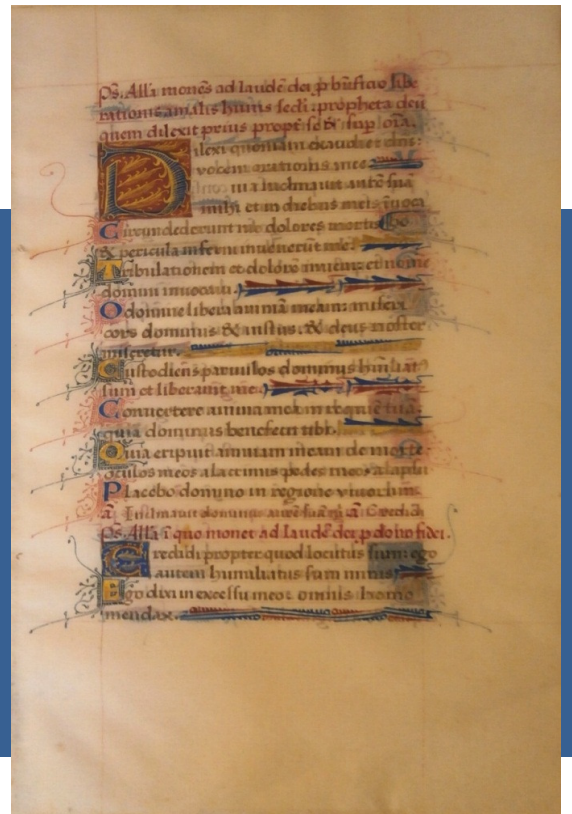 Ps. Alla monēs ad laudē dei p̄ bn̄ficio libe
rationis
quem dilexit prius
Dilexi quoniam exaudiet dn̄s:
vocem orationis mee
inclinavit aurē suā
mihi et in diebus meis īvoca
Circundederunt me dolores mortis
& pericula inferni invenerūt me
Tribulationem et dolorē inveni: et nomē
domini invocavi.
O domine libera animā meam: miseri
cors dominus & iustus. & deus noster
miseretur.
Custodiens parvulos dominus
sum et liberavit me.
Convertere anima mea in requiē tuā
quia dominus benefecit tibi.
Quia eripuit animam meam de morte
oculos meos a lacrimis pedes meos a lapsu
Placebo domino in regione vivorum.
Inclinavit dominus aurē suā
Ps. Alla ī quo monet ad laudē dei p̄ dono fidei.
Credidi propter quod locutus sum ego
autem humiliatus sum nimis
Ego dixi in excessu meo: omnis homo
mendax.